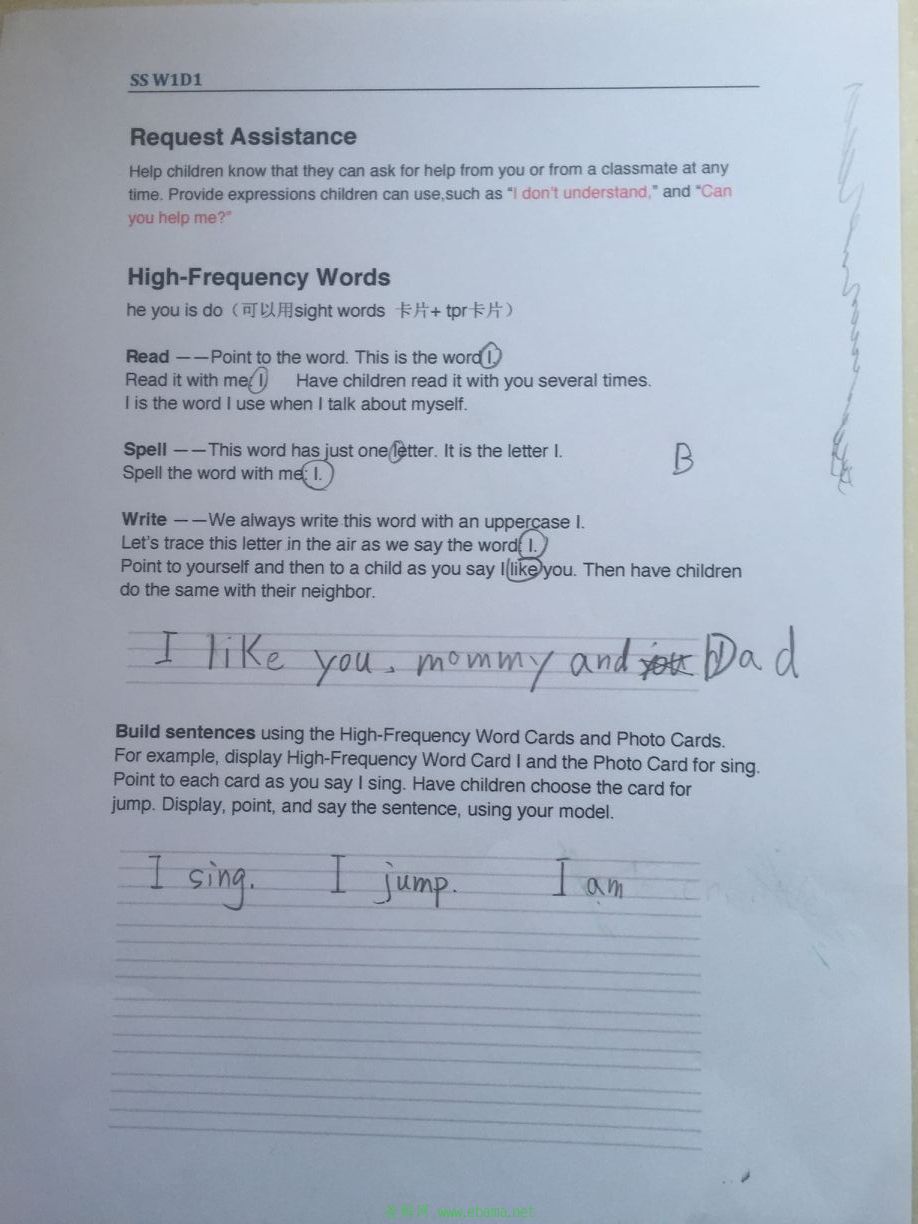 SS W1D1
Request Assistance
Help children know that they can ask for help from you or from a classmate at any
time. Provide expressions children can use,such as “I don't understand,” and “Can
you help me?”
High-Frequency Words
he you is do（可以用sight words 卡片+ tpr卡片）
Read ——Point to the word. This is the word I.
Read it with me: I Have children read it with you several times.
I is the word I use when I talk about myself.
Spell ——This word has just one letter. It is the letter I.
Spell the word with me: I.
B
Write ——We always write this word with an uppercase I.
Let's trace this letter in the air as we say the word I.
Point to yourself and then to a child as you say I like you. Then have children
do the same with their neighbor.
I like you. mommy and you Dad
Build sentences using the High-Frequency Word Cards and Photo Cards.
For example, display High-Frequency Word Card I and the Photo Card for sing.
Point to each card as you say I sing. Have children choose the card for
jump. Display, point, and say the sentence, using your model.
I sing. I jump. I am
www.ebama.net